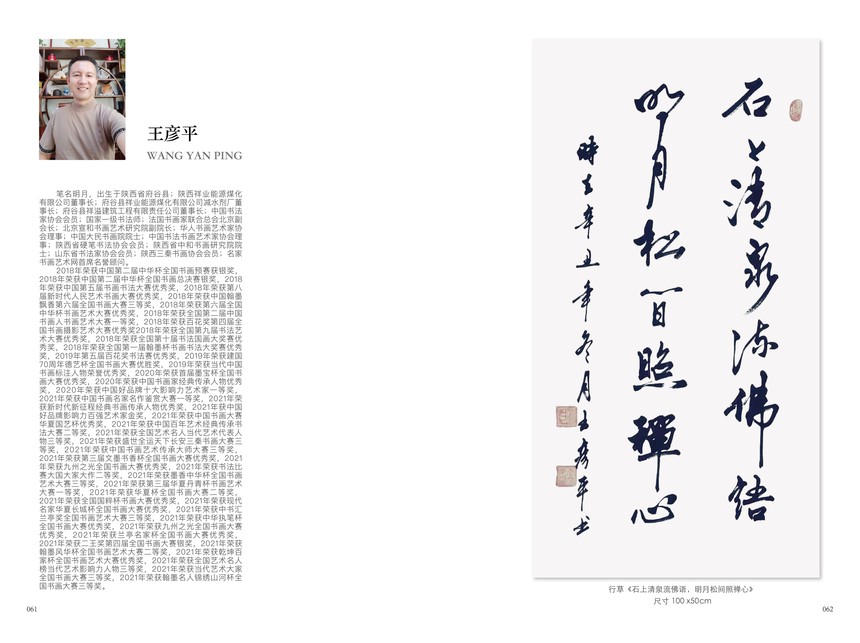 王彦平
WANG YAN PING
笔名明月，出生于陕西省府谷县；陕西祥业能源煤化
有限公司董事长；府谷县祥业能源煤化有限公司减水剂厂董
事长；府谷县祥溢建筑工程有限责任公司董事长；中国书法
家协会会员；国家一级书法师；法国书画家联合总会北京副
会长；北京宣和书画艺术研究院副院长；华人书画艺术家协
会理事；中国大民书画院院士；中国书法书画艺术家协会理
事；陕西省硬笔书法协会会员；陕西省中和书画研究院院
士；山东省书法家协会会员；陕西三秦书画协会会员；名家
书画艺术网首席名誉顾问。
2018年荣获中国第二届中华杯全国书画预赛获银奖，
2018年荣获中国第二届中华杯全国书画总决赛银奖，2018
年荣获中国第五届书画书法大赛优秀奖，2018年荣获第八
届新时代人民艺术书画大赛优秀奖，2018年荣获中国翰墨
飘香第六届全国书画大赛三等奖，2018年荣获第六届全国
中华杯书画艺术大赛优秀奖，2018年荣获全国第二届中国
书画人书画艺术大赛一等奖，2018年荣获百花奖第四届全
国书画摄影艺术大赛优秀奖2018年荣获全国第九届书法艺
术大赛优秀奖，2018年荣获全国第十届书法国画大奖赛优
秀奖，2018年荣获全国第一届翰墨杯书画书法大奖赛优秀
奖，2019年第五届百花奖书法赛优秀奖，2019年荣获建国
70周年德艺杯全国书画大赛优胜奖，2019年荣获当代中国
书画标注人物荣誉优秀奖，2020年荣获首届墨宝杯全国书
画大赛优秀奖，2020年荣获中国书画家经典传承人物优秀
奖，2020年荣获中国好品牌十大影响力艺术家一等奖，
2021年荣获中国书画名家名作鉴赏大赛一等奖，2021年荣
获新时代新征程经典书画传承人物优秀奖，2021年获中国
好品牌影响力百强艺术家金奖，2021年荣获中国书画大赛
华夏国艺杯优秀奖，2021年荣获中国百年艺术经典传承书
法大赛二等奖，2021年荣获全国艺术名人当代艺术代表人
物三等奖，2021年荣获盛世全运天下长安三秦书画大赛三
等奖，2021年荣获中国书画艺术传承大师大赛三等奖，
2021年荣获第三届文墨书香杯全国书画大赛优秀奖，2021
年荣获九州之光全国书画大赛优秀奖，2021年荣获书法比
赛大国大家大作二等奖，2021年荣获墨香中华杯全国书画
艺术大赛三等奖，2021年荣获第三届华夏丹青杯书画艺术
大赛一等奖，2021年荣获华夏杯全国书画大赛二等奖，
2021年荣获全国国粹杯书画大赛优秀奖，2021年荣获现代
名家华夏长城杯全国书画大赛优秀奖，2021年荣获中书汇
兰亭奖全国书画艺术大赛三等奖，2021年荣获中华执笔杯
全国书画大赛优秀奖，2021年荣获九州之光全国书画大赛
优秀奖，2021年荣获兰亭名家杯全国书画大赛优秀奖，
2021年荣获二王奖第四届全国书画大赛银奖，2021年荣获
翰墨风华杯全国书画艺术大赛二等奖，2021年荣获乾坤百
家杯全国书画艺术大赛优秀奖，2021年荣获全国艺术名人
榜当代艺术影响力人物三等奖，2021年荣获当代艺术大家
全国书画大赛三等奖，2021年荣获翰墨名人锦绣山河杯全
国书画大赛三等奖。
061
石上清泉流佛語
明月松间照禪心
時在辛丑年冬月王彦平书
行草《石上清泉流佛语，明月松间照禅心》
尺寸 100 x50cm
062